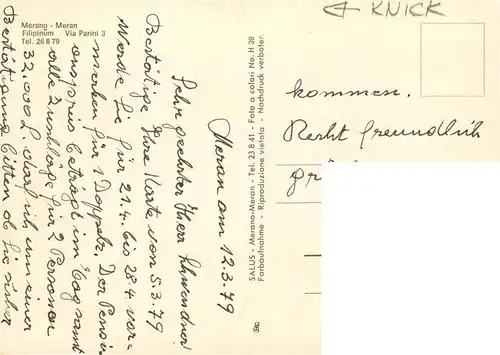 Merano - Meran
Filipinum Via Parini 3
Tel. 26 8 79
KNICK
Meran am 12.3.79
Sehr geehrter Herr Schwendner!
Bestätige Ihre Karte vom 5.3.79
Werde Sie für 21.4. bis 28.4. vor-
merken für 1 Doppelz. Der Pensi-
onspreis beträgt im Tag samt
alle Zuschläge für 2 Personen
32.000 L. darf ich um einer
Bestätigung bitten ob Sie sicher
kommen.
Recht freundlich
Grü
SALUS - Merano-Meran - Tel. 23 8 41 - Foto a colori No. H 39
Farbaufnahme - Riproduzione vietata - Nachdruck verboten